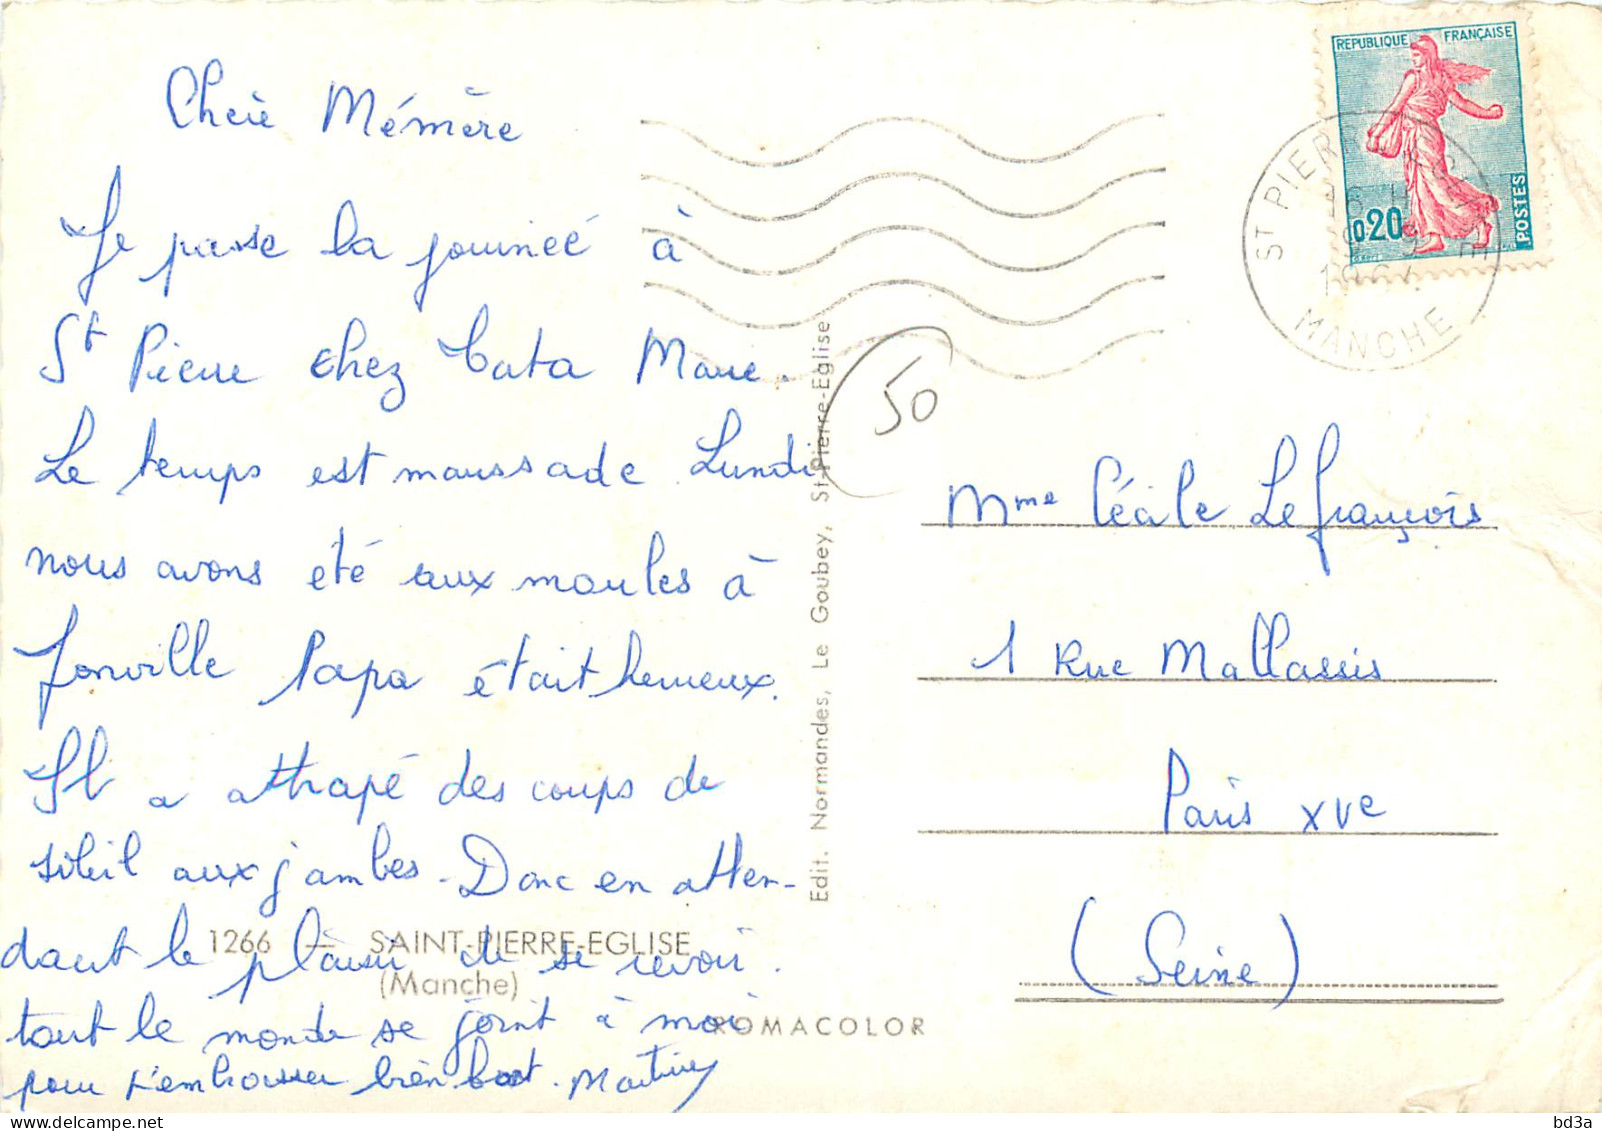 Chère Mémère
Je passe la journeé à
St Pierre chez Tata Marie.
Le temps est maussade Lundi
nous avons été aux moules à
fonville Papa était heureux.
Il a attrapé des coups de
soleil aux jambes. Donc en atten-
dant le plaisir de se revoir.
tout le monde se joint à moi
pour t'embrasser bien fort. Martine
1266 — SAINT-PIERRE-EGLISE
(Manche)
ROMACOLOR
Edit. Normandes, Le Goubey, St-Pierre-Eglise
50
REPUBLIQUE FRANÇAISE
0,20
POSTES
ST PIERRE EGLISE
MANCHE
Mme Cécile Lefrançois
1 Rue Mallassis
Paris XVe
(Seine)
bd3a